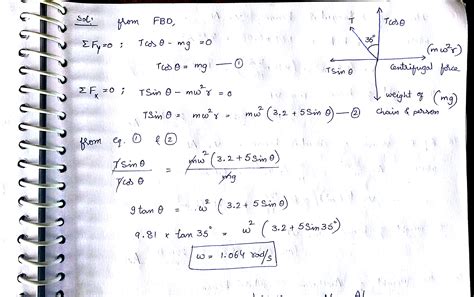 Sol: from FBD,
ΣFy=0 ; Tcosθ - mg = 0
Tcosθ = mg — ①
ΣFx=0 ; TSinθ - mω²r = 0
TSinθ = mω²r = mω² (3.2 + 5 Sinθ) — ②
from eq. ① & ②
TSinθ / Tcosθ = mω² (3.2 + 5Sinθ) / mg
g tanθ = ω² (3.2 + 5 Sinθ)
9.81 × tan 35° = ω² (3.2 + 5 Sin 35°)
ω = 1.064 rad/s
T
Tcosθ
TSinθ
(mω²r)
Centrifugal force
weight of (mg)
chain & person